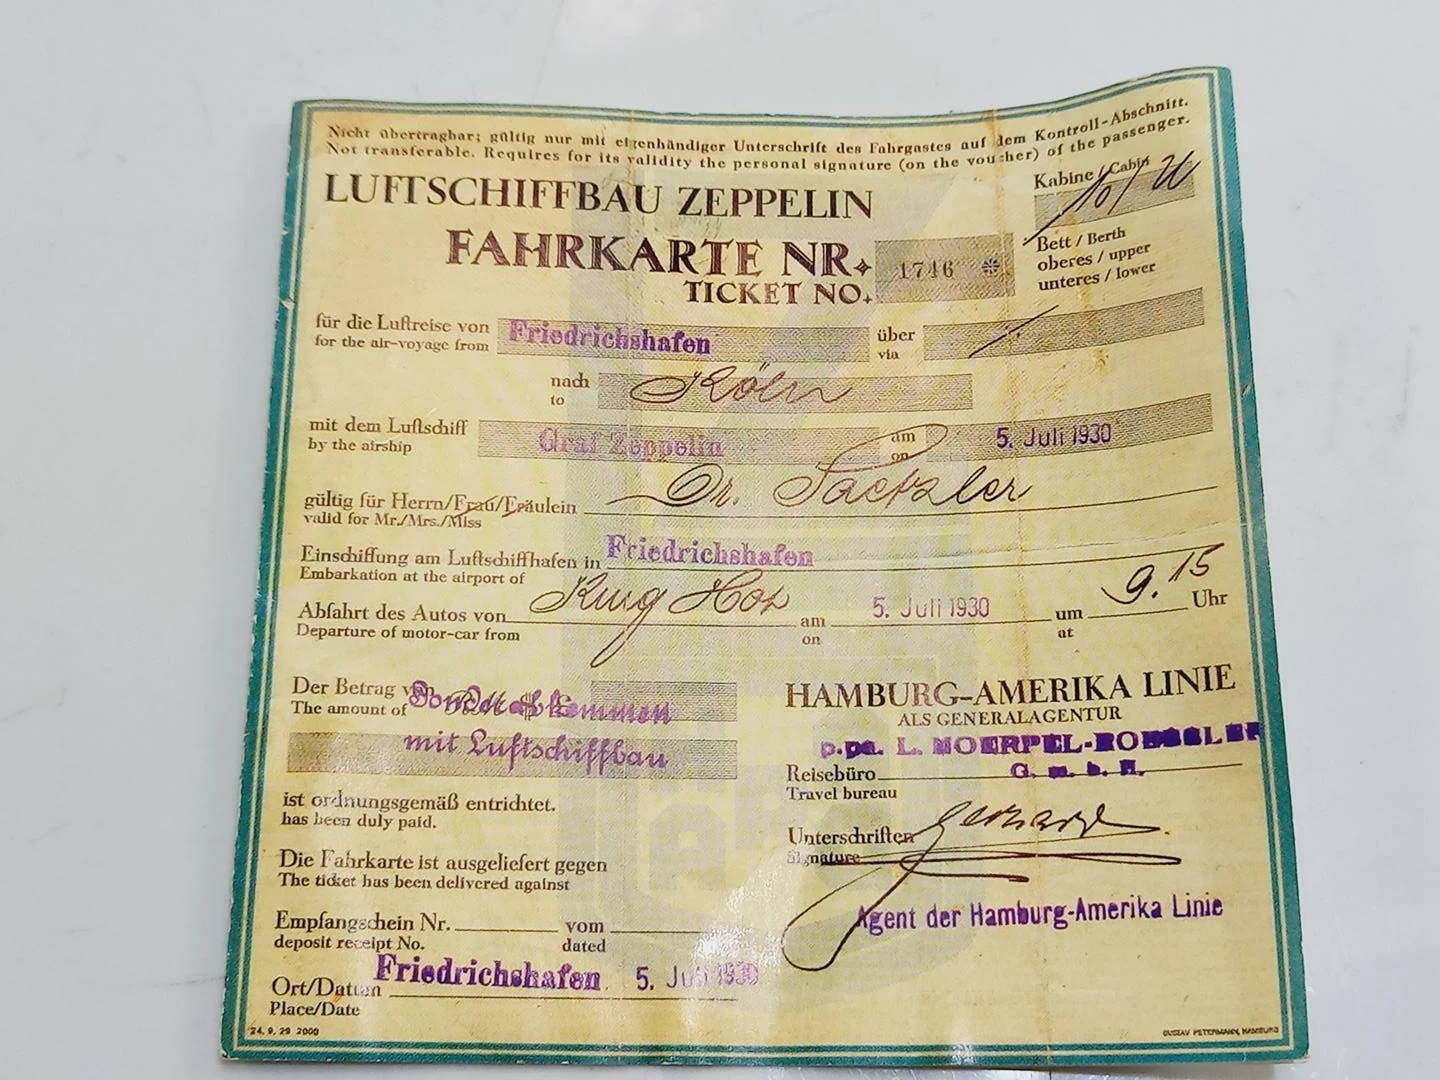 Nicht übertragbar; gültig nur mit eigenhändiger Unterschrift des Fahrgastes auf dem Kontroll-Abschnitt.
Not transferable. Requires for its validity the personal signature (on the voucher) of the passenger.
LUFTSCHIFFBAU ZEPPELIN
Kabine / Cabin
FAHRKARTE NR. 1746
TICKET NO.
Bett / Berth
oberes / upper
unteres / lower
für die Luftreise von Friedrichshafen über
for the air-voyage from via
nach Köln
to
mit dem Luftschiff Graf Zeppelin am 5. Juli 1930
by the airship on
gültig für Herrn/Frau/Fräulein Dr. Paetzler
valid for Mr./Mrs./Miss
Einschiffung am Luftschiffhafen in Friedrichshafen
Embarkation at the airport of
Abfahrt des Autos von am 5. Juli 1930 um 9.15 Uhr
Departure of motor-car from on at
Der Betrag von Sonderabkommen
The amount of
mit Luftschiffbau
ist ordnungsgemäß entrichtet.
has been duly paid.
Die Fahrkarte ist ausgeliefert gegen
The ticket has been delivered against
Empfangschein Nr. vom
deposit receipt No. dated
Ort/Datum Friedrichshafen 5. Juli 1930
Place/Date
24. 9. 29 2000
HAMBURG-AMERIKA LINIE
ALS GENERALAGENTUR
p.pa. L. MOERPEL-ROESSLER
Reisebüro G. m. b. H.
Travel bureau
Unterschriften
Signature
Agent der Hamburg-Amerika Linie
GUSTAV PETERMANN, HAMBURG